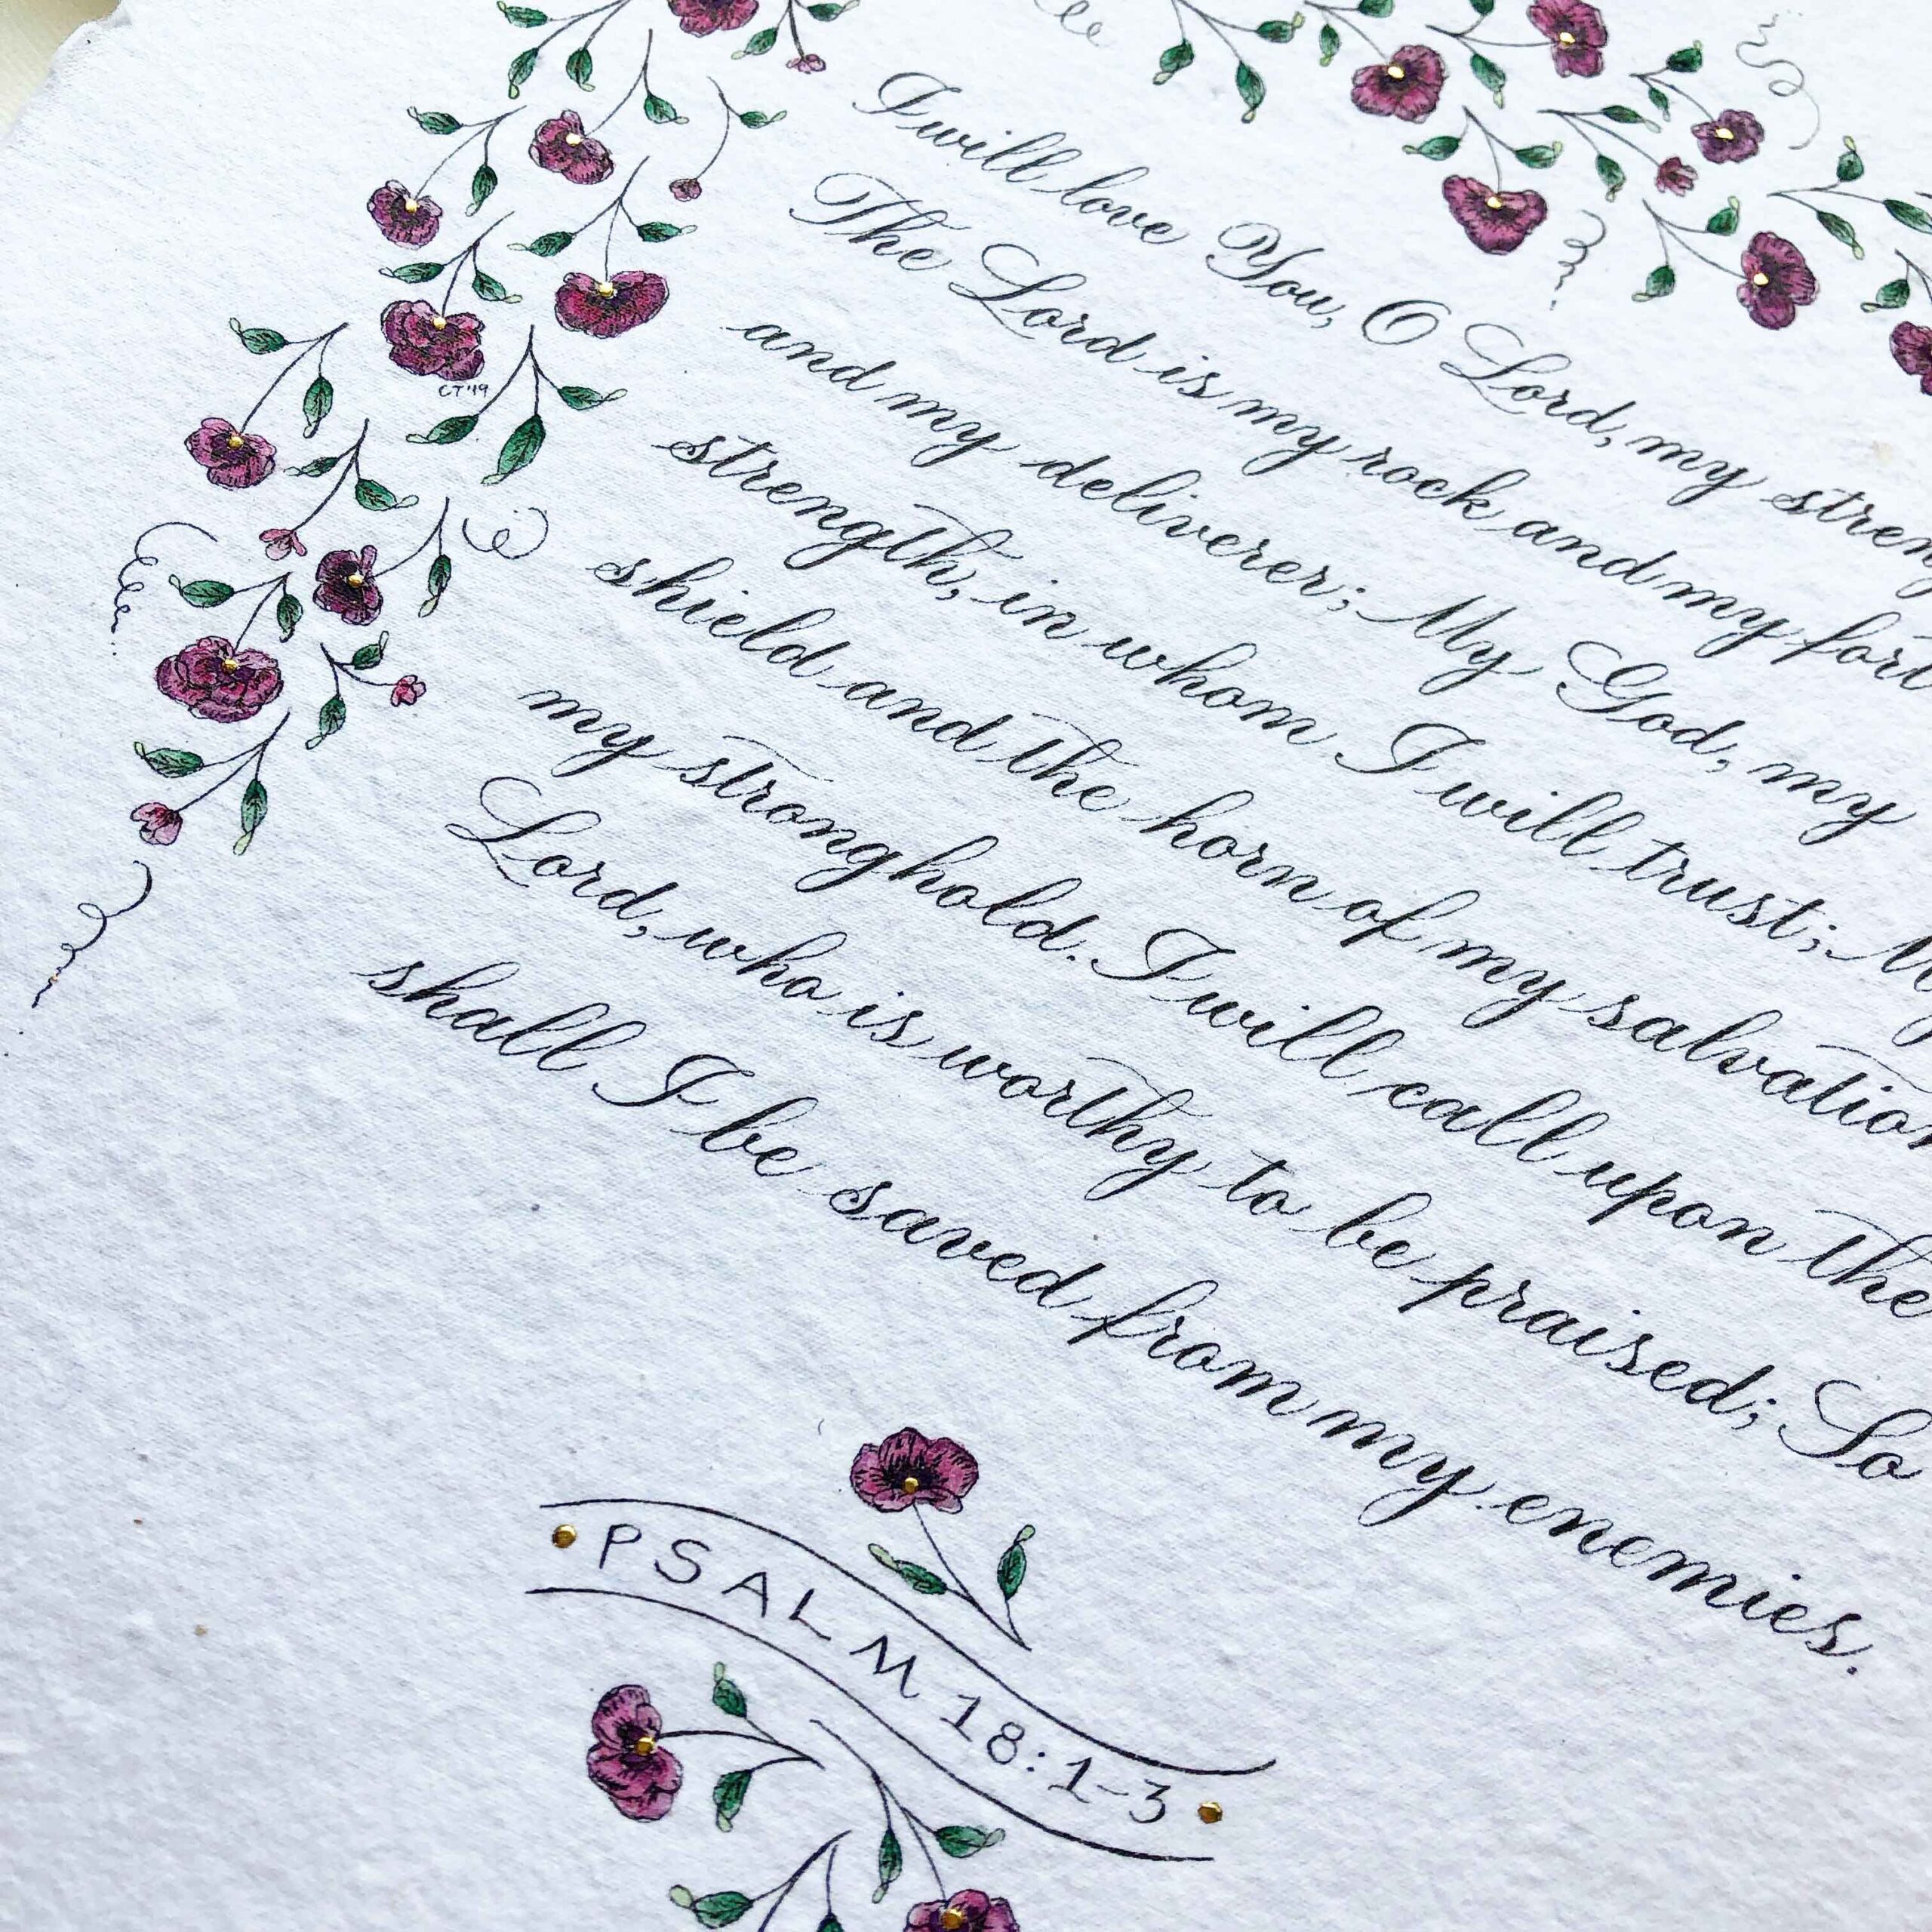 I will love You, O Lord, my stren
The Lord is my rock and my fort
and my deliverer; My God, my
strength, in whom I will trust; My
shield and the horn of my salvation
my stronghold. I will call upon the
Lord, who is worthy to be praised; So
shall I be saved from my enemies.
PSALM 18:1-3
CT'19